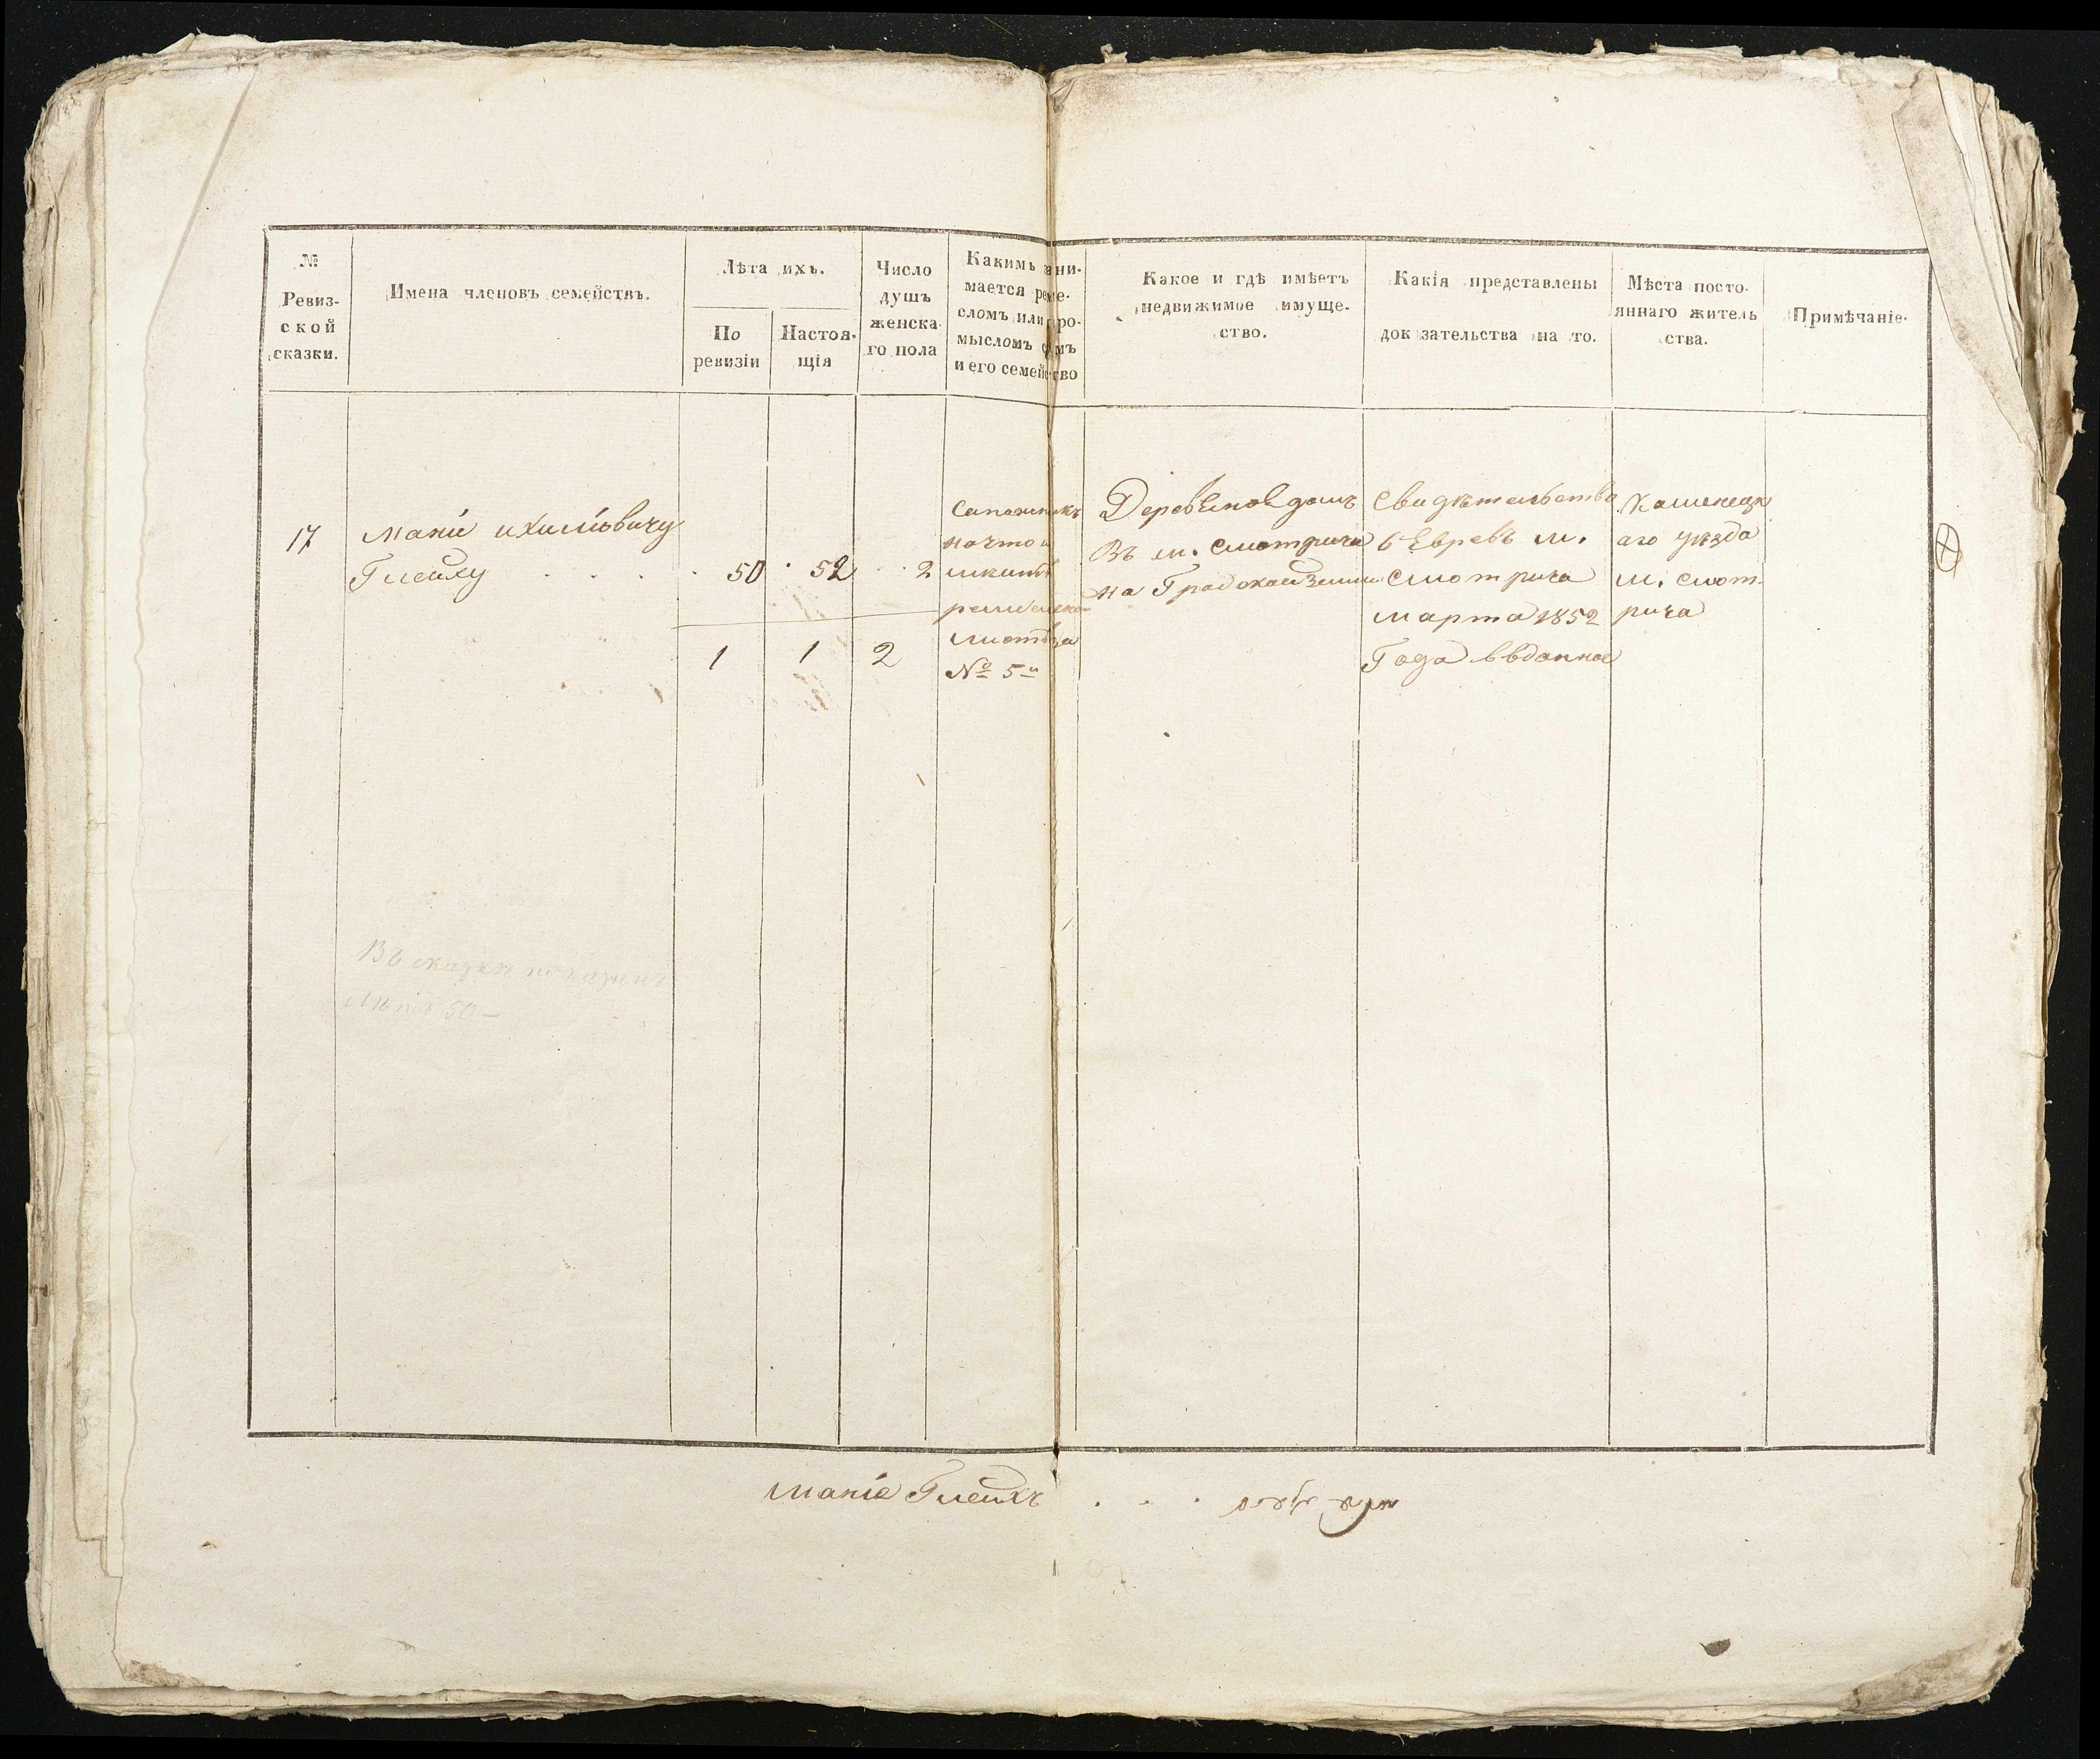 №
Ревиз-
ской
сказки.
Имена членовъ семействъ.
Лѣта ихъ.
По
ревизіи
Настоя-
щія
Число
душъ
женска-
го пола
Какимъ зани-
мается реме-
сломъ или про-
мысломъ самъ
и его семейство
Какое и гдѣ имѣетъ
недвижимое имуще-
ство.
Какія представлены
док зательства на то.
Мѣста посто-
яннаго житель
ства.
Примѣчаніе.
17
Мани
Глейху
50
52
2
1
1
2
Сапожникъ
на что и
№ 5й
Деревеной домъ
Въ м. Смотрича
на Градской Земли
Свидѣтельство
6 Евреевъ м.
Смотрича
марта 1852
Года
Каменецк
аго уѣзда
м. Смот-
рича
Въ сказки показанъ
лѣтъ 50 –
Маніе Глейхъ